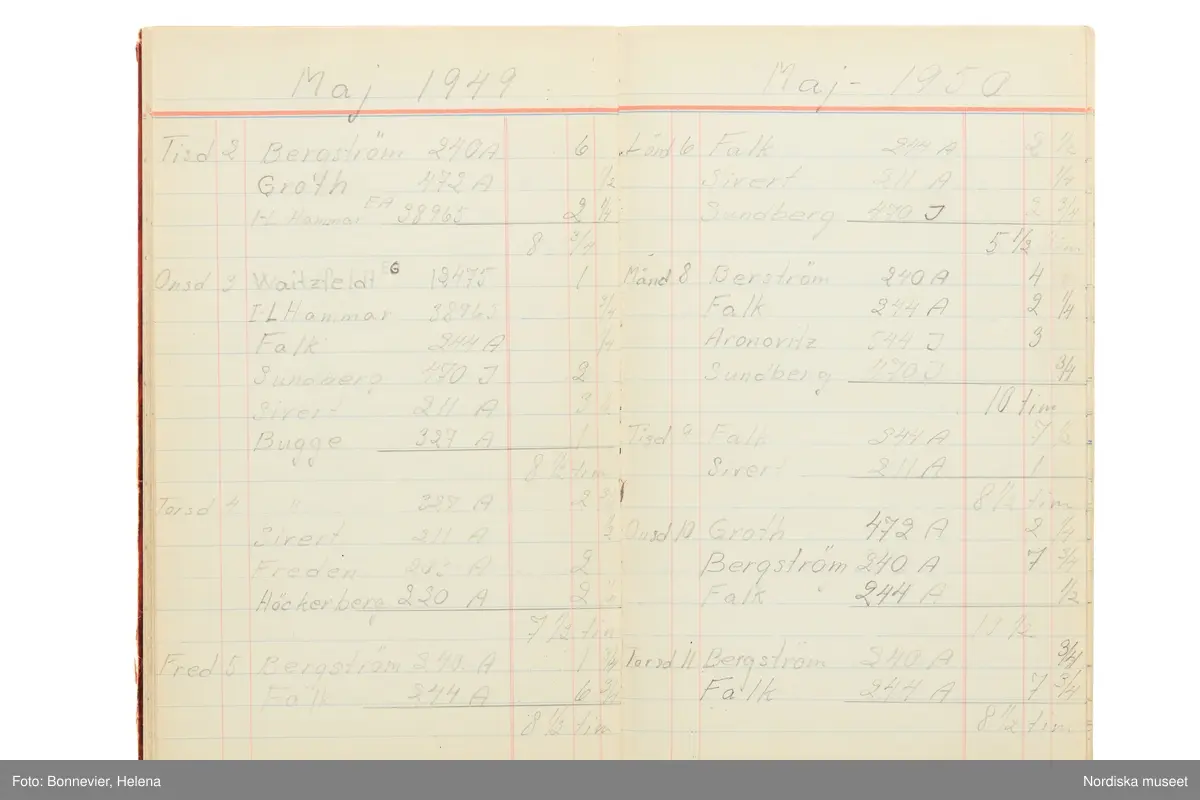 Maj 1949
Tisd 2 Bergström 240 A 6
Groth 472 A 1/2
H. Hammar EA 38965 2 1/4
8 3/4
Onsd 3 Waitzfeldt G 18475 1
I-L Hammar 38965 3/4
Falk 244 A 1/4
Sundberg 470 J 2
Sivert 211 A 3
Bugge 327 A 1
8 1/2 tim
Torsd 4 " 327 A 2
Sivert 211 A 1/2
Freden A 2
Häckerberg 220 A 2
7 1/2 tim
Fred 5 Bergström 240 A 1 3/4
Falk 244 A 6 3/4
8 1/2 tim
Maj - 1950
Lörd 6 Falk 244 A 2 1/2
Sivert 211 A 1/4
Sundberg 470 J 2 3/4
5 1/2 tim
Månd 8 Berström 240 A 4
Falk 244 A 2 1/4
Aronovitz 544 J 3
Sundberg 470 J 3/4
10 tim
Tisd 9 Falk 244 A 7 1/2
Sivert 211 A 1
8 1/2 tim
Onsd 10 Groth 472 A 2 1/4
Bergström 240 A 7 3/4
Falk 244 A 1/2
1/2
Torsd 11 Bergström 240 A 3/4
Falk 244 A 7 3/4
8 1/2 tim
Foto: Bonnevier, Helena
Nordiska museet